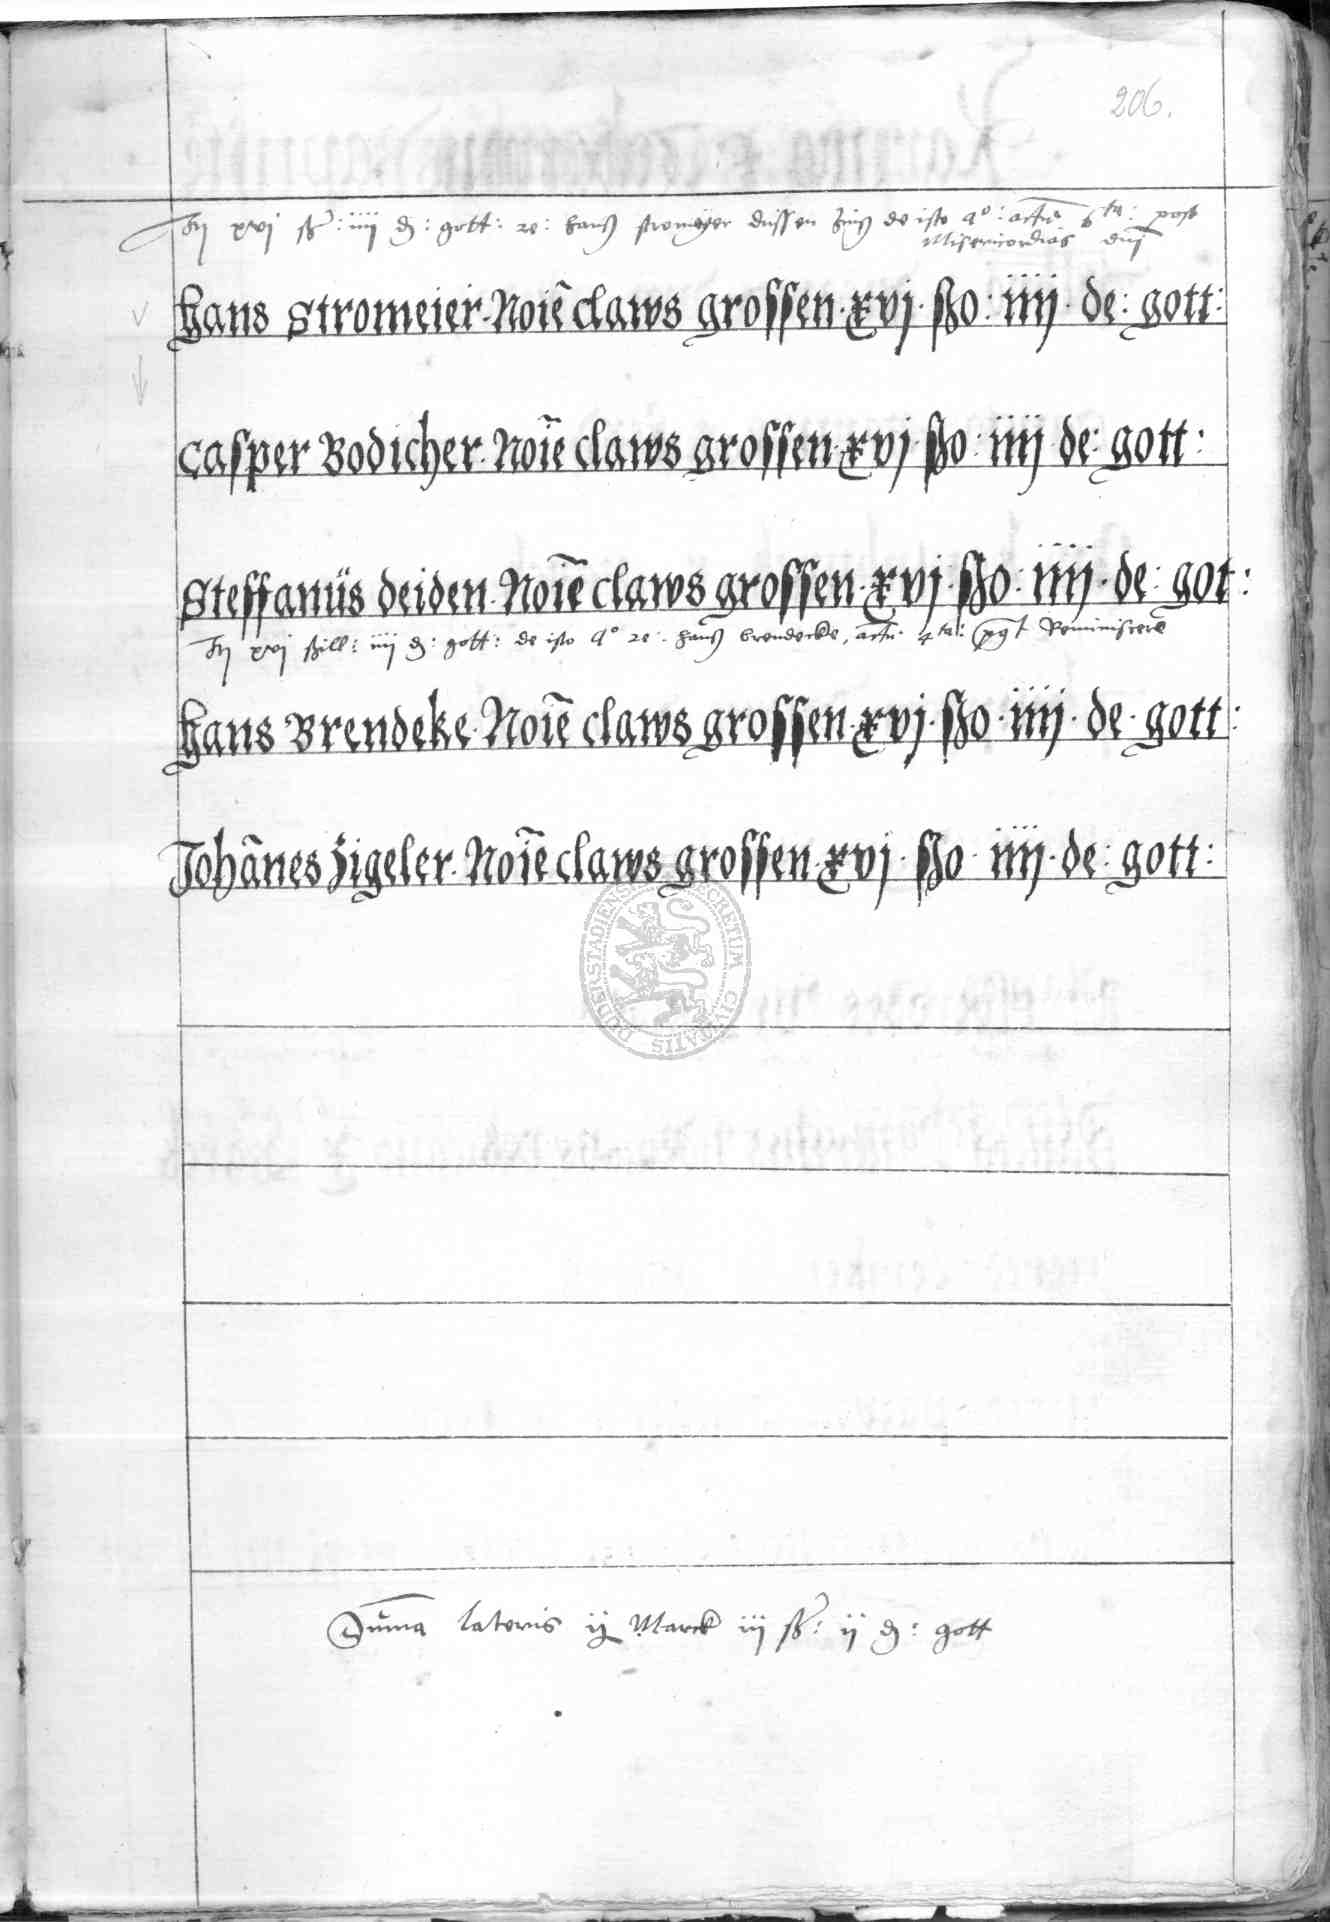 206.
xvj ß: iiij d: gott: re: hanß stromeyer dussen Zinß de isto a°: actum 6ta: post
Misericordias dni
Hans Stromeier. Noīe claws grossen. xvj. ßo: iiij. de: gott:
Casper Bodicher. Noīe claws grossen. xvj. ßo: iiij de: gott:
Steffanus deiden. Noīe claws grossen. xvj. ßo: iiij. de: got:
xvj ßill: iiij d: gott: de isto a° re: Hanß brendecke, actu: 4ta: post Reminiscere
Hans Brendeke. Noīe claws grossen. xvj. ßo. iiij. de. gott:
Johānes Zigeler. Noīe claws grossen. xvj. ßo iiij. de: gott:
SECRETUM CIVITATIS DUDERSTADIENSIS
Suma lateris ij Marck iij ß: ij d: gott